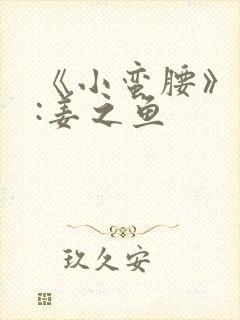 《小蛮腰》
:姜之鱼
玖久安